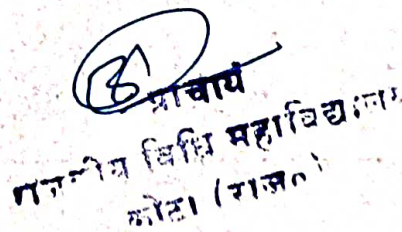 प्राचार्य
राजकीय विधि महाविद्यालय
कोटा (राज०)